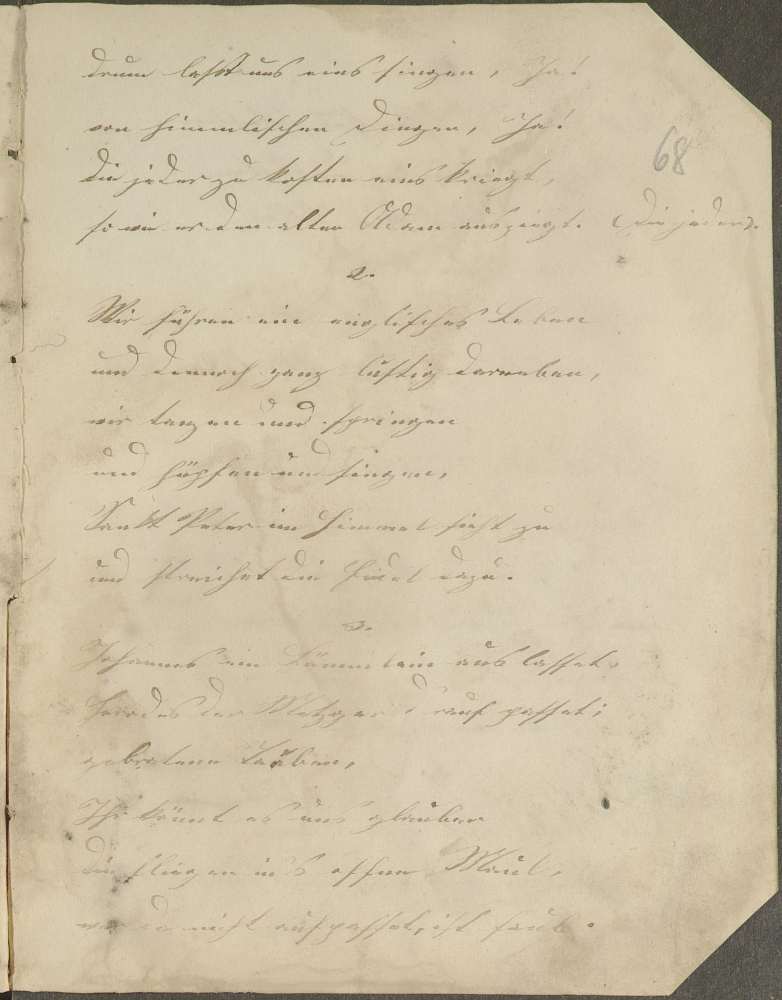 drum lasst uns eins singen, Ja!
von himmlischen Dingen, Ja!
68
die jeder zu kosten eins kriegt,
so wie er den alten Adam ausziegt. (Die jeder).
2.
Wir führen ein englisches Leben
und dennoch ganz lustig darneben,
wir tanzen und springen
und hüpfen und singen,
Sankt Peter im Himmel sieht zu
und streichet die Fidel dazu.
3.
Johannes sein Lämmlein auslasset,
Herodes der Metzger drauf passet;
gebratene Tauben,
Ihr könnt es uns glauben
die fliegen in's offne Maul,
wer da nicht aufpasset, ist faul.